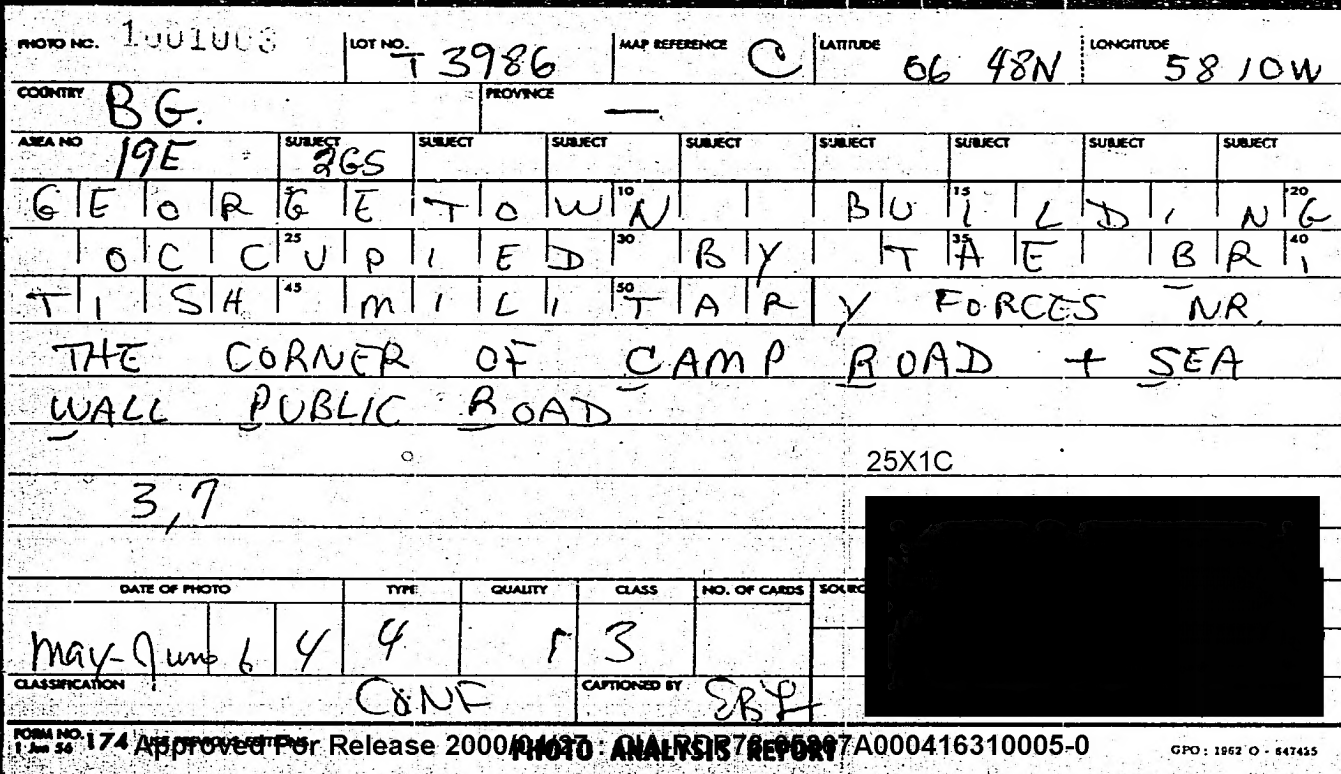 PHOTO NO. 1001003 LOT NO. T 3986 MAP REFERENCE C LATITUDE 06 48N LONGITUDE 58 10W
COUNTRY BG. PROVINCE —
AREA NO 19E SUBJECT 2GS SUBJECT SUBJECT SUBJECT SUBJECT SUBJECT SUBJECT SUBJECT
GEORGETOWN BUILDING
5 10 15 20
OCCUPIED BY THE BRI
25 30 35 40
TISH MILITARY FORCES NR.
45 50
THE CORNER OF CAMP ROAD + SEA
WALL PUBLIC ROAD
25X1C
3,7
DATE OF PHOTO TYPE QUALITY CLASS NO. OF CARDS
May-June 64 4 3
CLASSIFICATION CONF CAPTIONED BY
FORM NO. 174 Approved For Release 2000/04/27 : CIA-RDP78-A000416310005-0 GPO: 1962 O - 647425
1 Jun 56 PHOTO ANALYSIS REPORT